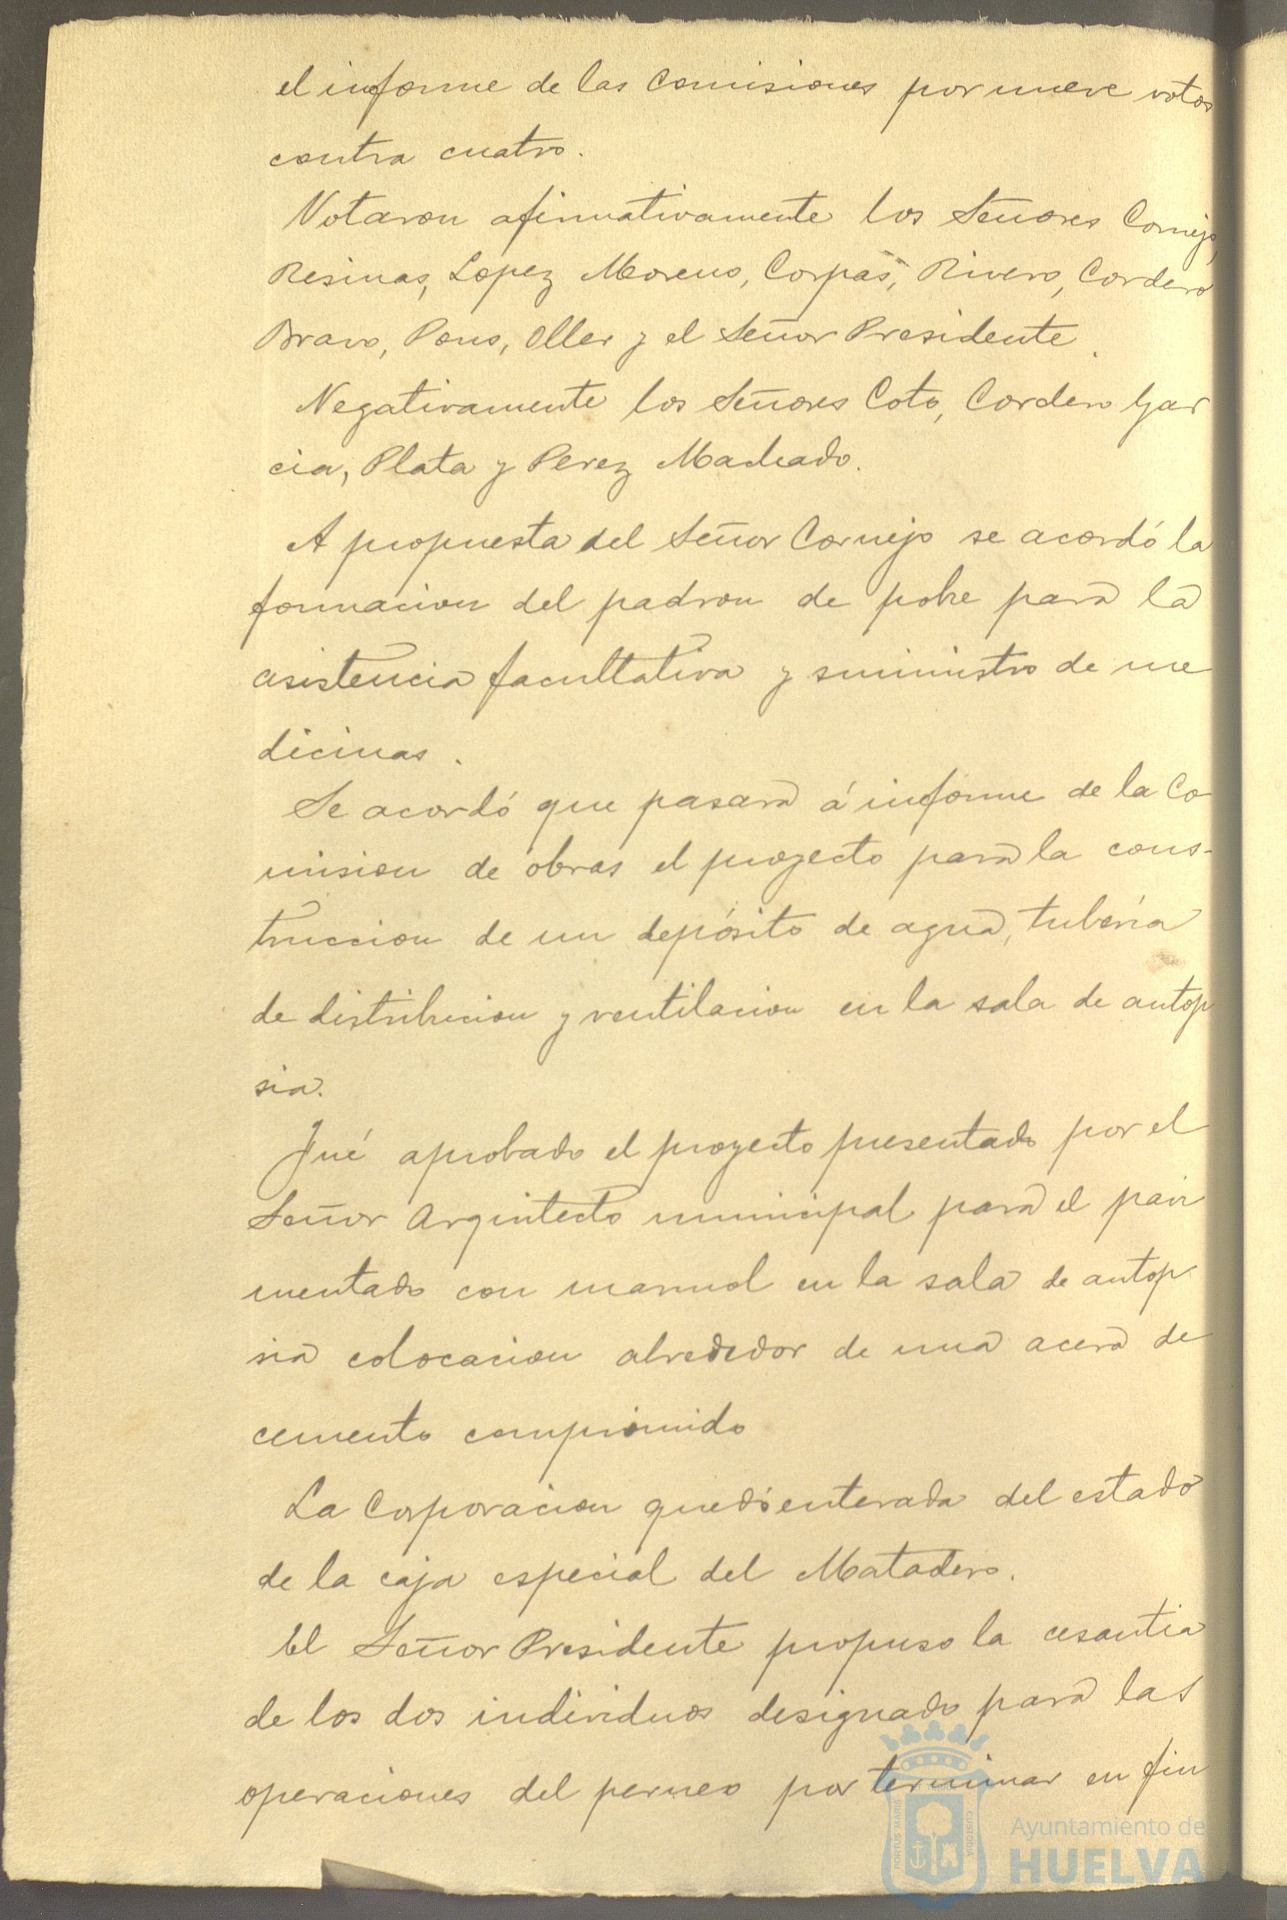 el informe de las Comisiones por nueve votos
contra cuatro.
Votaron afirmativamente los Señores Cornejo,
Resinas, Lopez Moreno, Corpas, Rivero, Cordero
Bravo, Pons, Oller y el Señor Presidente.
Negativamente los Señores Coto, Cordero Gar
cia, Plata y Perez Machado.
A propuesta del Señor Cornejo se acordó la
formacion del padron de pobre para la
asistencia facultativa y suministro de me
dicinas.
Se acordó que pasara á informe de la Co
mision de obras el proyecto para la cons-
truccion de un depósito de agua, tubería
de distribucion y ventilacion en la sala de autop
sia.
Fué aprobado el proyecto presentado por el
Señor Arquitecto municipal para el pavi
mentado con marmol en la sala de autop
sia colocacion alrededor de una acera de
cemento comprimido
La Corporacion quedó enterada del estado
de la caja especial del Matadero.
El Señor Presidente propuso la cesantia
de los dos individuos designado para las
operaciones del perneo por terminar en fin
PORTUS MARIS
CUSTODIA
Ayuntamiento de
HUELVA